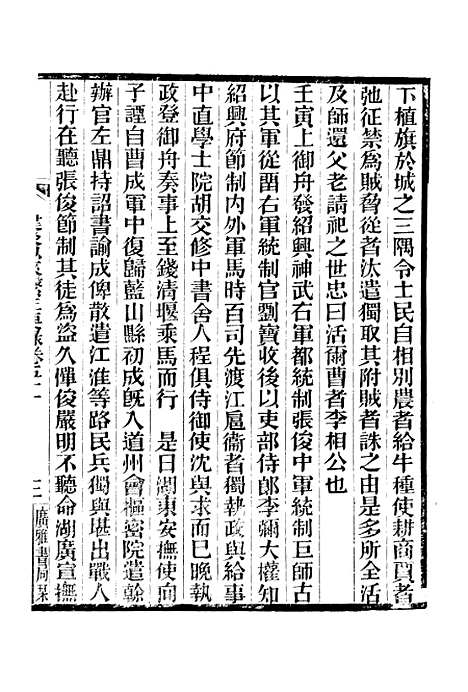 下植旗於城之三隅令士民自相別農者給牛種使耕商賈者
弛征禁爲賊脅從者汰遣獨取其附賊者誅之由是多所全活
及師還父老請祀之世忠曰活爾曹者李相公也
壬寅上御舟發紹興神武右軍都統制張俊中軍統制巨師古
以其軍從留右軍統制官劉寶收後以吏部侍郎李彌大權知
紹興府節制內外軍馬時百司先渡江扈衞者獨執政與給事
中直學士院胡交修中書舍人程俱侍御使沈與求而巳晚執
政登御舟奏事上至錢清堰乘馬而行　是日湖東安撫使向
子諲自曹成軍中復歸藍山縣初成旣入道州會樞密院遣幹
辦官左鼎持詔書諭成俾散遣江淮等路民兵獨與堪出戰人
赴行在聽張俊節制其徒爲盜久憚俊嚴明不聽命湖廣宣撫
廣雅書局栞